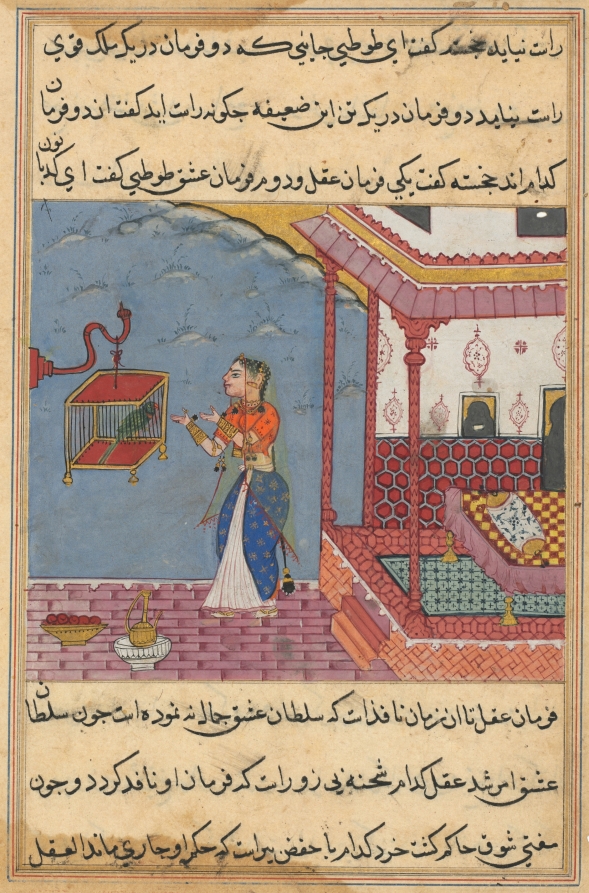 راست نیاید خجسته گفت ای طوطی جایی که دو فرمان در یک ملک قوی
راست نیاید دو فرمان در یک تن این ضعیفه چگونه راست اید گفت ان دو فرمان
کدام اند خجسته گفت یکی فرمان عقل و دوم فرمان عشق طوطی گفت ای کدبانون
فرمان عقل تا ان زمان نافذ است که سلطان عشق جمال نه نموده است جون سلطان
عشق امر شد عقل کدام شحنه بی زور است که فرمان او نافذ کردد و جون
مفتی شوق حاکم کشت خرد کدام با است که حکم او جاری ماند العقل